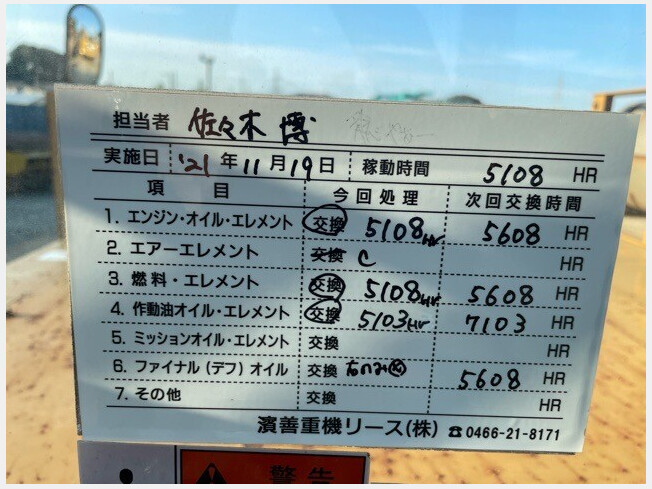 担当者 佐々木 博
実施日 '21年11月19日 稼動時間 5108 HR
項 目 今回処理 次回交換時間
1. エンジン・オイル・エレメント 交換 5108HR 5608 HR
2. エアーエレメント 交換 C HR
3. 燃料・エレメント 交換 5108HR 5608 HR
4. 作動油オイル・エレメント 交換 5103HR 7103 HR
5. ミッションオイル・エレメント 交換 HR
6. ファイナル(デフ)オイル 交換 5608 HR
7. その他 交換 HR
濱善重機リース(株) ☎0466-21-8171
警告